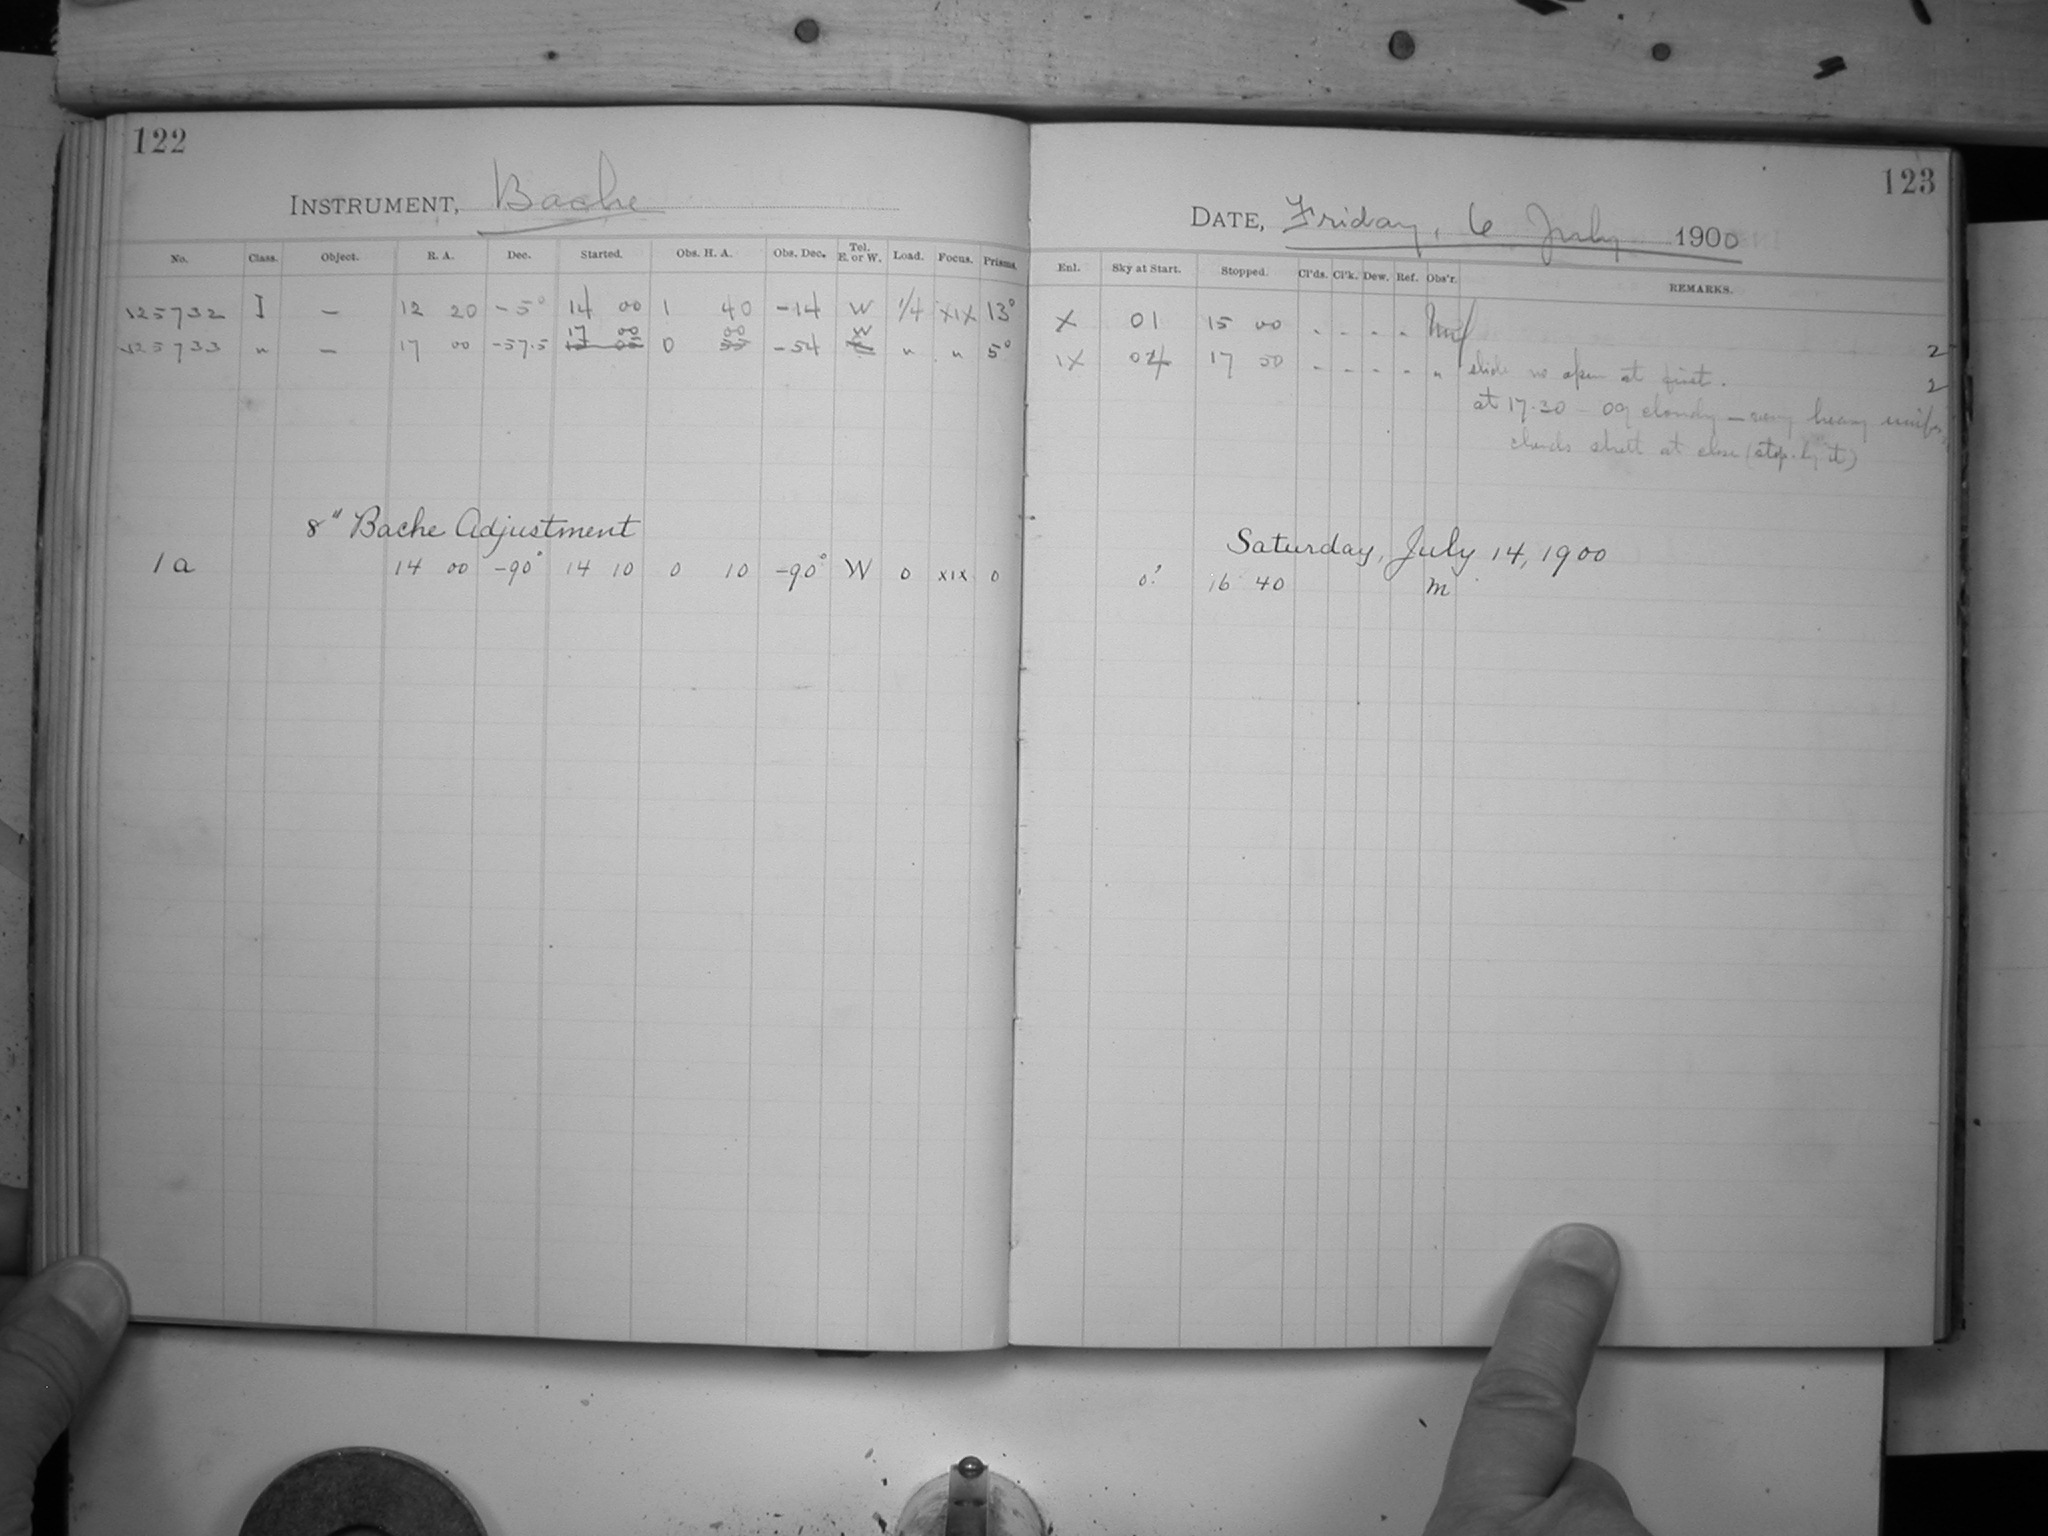 122
INSTRUMENT, Bache
No. Class. Object. R. A. Dec. Started. Obs. H. A. Obs. Dec. Tel. E. or W. Load. Focus. Prisms.
I – 12 20 -5° 14 00 1 40 -14 W 1/4 XIX 13°
17 00 00 W
" – 17 00 -57.5 0 -54 " " 5°
8" Bache Adjustment
1a 14 00 -90° 14 10 0 10 -90° W 0 XIX 0
123
DATE, Friday, 6 July 1900
Enl. Sky at Start. Stopped. Cl'ds. Cl'k. Dew. Ref. Obs'r. REMARKS.
X 01 15 00 - - - - 2
IX 17 50 - - - - " slide no open at first. 2
at 17.30 - 09 cloudy – very heavy
clouds at close (stop. by it)
Saturday, July 14, 1900
0? 16 40 M